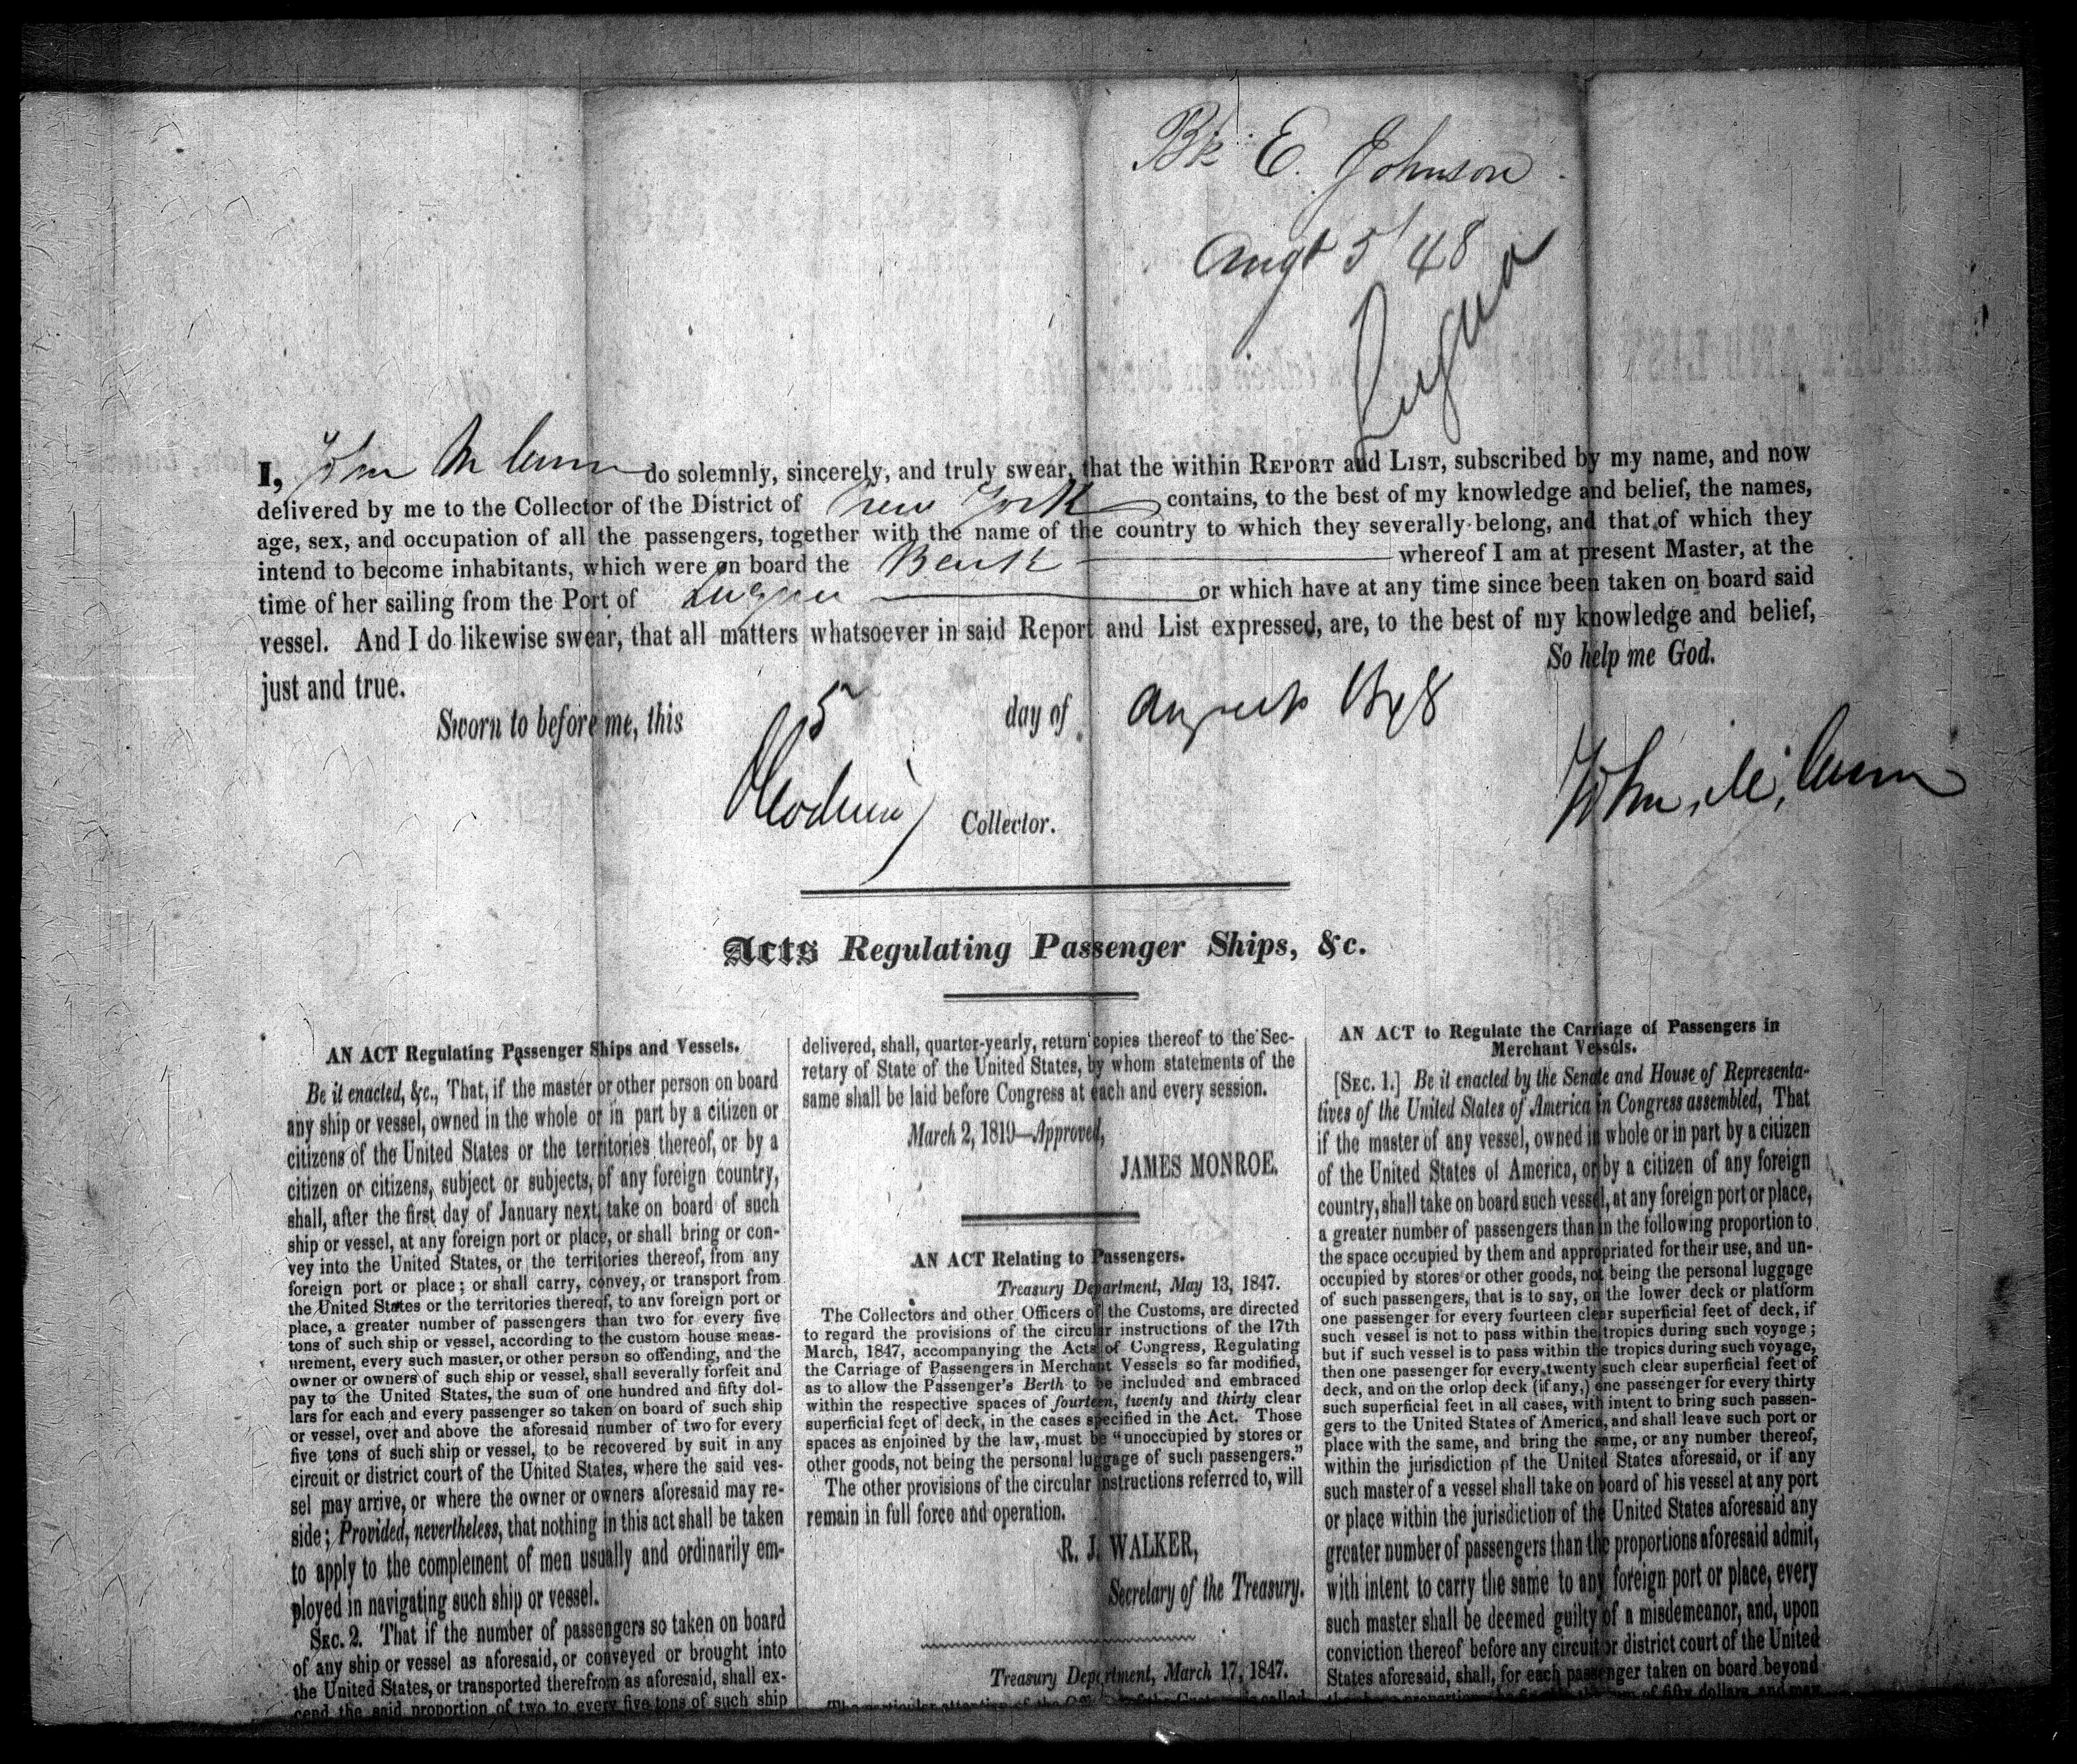 Bk E. Johnson
Augt 5/48
Laguna
I, John M Cunn do solemnly, sincerely, and truly swear, that the within REPORT and LIST, subscribed by my name, and now
delivered by me to the Collector of the District of New York contains, to the best of my knowledge and belief, the names,
age, sex, and occupation of all the passengers, together with the name of the country to which they severally belong, and that of which they
intend to become inhabitants, which were on board the whereof I am at present Master, at the
time of her sailing from the Port of Laguna or which have at any time since been taken on board said
vessel. And I do likewise swear, that all matters whatsoever in said Report and List expressed, are, to the best of my knowledge and belief,
just and true. So help me God.
Sworn to before me, this 5 day of August 1848
Collector.
Acts Regulating Passenger Ships, &c.
AN ACT Regulating Passenger Ships and Vessels.
Be it enacted, &c., That, if the master or other person on board
any ship or vessel, owned in the whole or in part by a citizen or
citizens of the United States or the territories thereof, or by a
citizen or citizens, subject or subjects, of any foreign country,
shall, after the first day of January next, take on board of such
ship or vessel, at any foreign port or place, or shall bring or con-
vey into the United States, or the territories thereof, from any
foreign port or place; or shall carry, convey, or transport from
the United States or the territories thereof, to any foreign port or
place, a greater number of passengers than two for every five
tons of such ship or vessel, according to the custom house meas-
urement, every such master, or other person so offending, and the
owner or owners of such ship or vessel, shall severally forfeit and
pay to the United States, the sum of one hundred and fifty dol-
lars for each and every passenger so taken on board of such ship
or vessel, over and above the aforesaid number of two for every
five tons of such ship or vessel, to be recovered by suit in any
circuit or district court of the United States, where the said ves-
sel may arrive, or where the owner or owners aforesaid may re-
side; Provided, nevertheless, that nothing in this act shall be taken
to apply to the complement of men usually and ordinarily em-
ployed in navigating such ship or vessel.
SEC. 2. That if the number of passengers so taken on board
of any ship or vessel as aforesaid, or conveyed or brought into
the United States, or transported therefrom as aforesaid, shall ex-
ceed the said proportion of two to every five tons of such ship
delivered, shall, quarter-yearly, return copies thereof to the Sec-
retary of State of the United States, by whom statements of the
same shall be laid before Congress at each and every session.
March 2, 1819—Approved,
JAMES MONROE.
AN ACT Relating to Passengers.
Treasury Department, May 13, 1847.
The Collectors and other Officers of the Customs, are directed
to regard the provisions of the circular instructions of the 17th
March, 1847, accompanying the Acts of Congress, Regulating
the Carriage of Passengers in Merchant Vessels so far modified,
as to allow the Passenger's Berth to be included and embraced
within the respective spaces of fourteen, twenty and thirty clear
superficial feet of deck, in the cases specified in the Act. Those
spaces as enjoined by the law, must be "unoccupied by stores or
other goods, not being the personal luggage of such passengers."
The other provisions of the circular instructions referred to, will
remain in full force and operation.
R. J. WALKER,
Secretary of the Treasury.
Treasury Department, March 17, 1847.
AN ACT to Regulate the Carriage of Passengers in
Merchant Vessels.
[SEC. 1.] Be it enacted by the Senate and House of Representa-
tives of the United States of America in Congress assembled, That
if the master of any vessel, owned in whole or in part by a citizen
of the United States of America, or by a citizen of any foreign
country, shall take on board such vessel, at any foreign port or place,
a greater number of passengers than in the following proportion to
the space occupied by them and appropriated for their use, and un-
occupied by stores or other goods, not being the personal luggage
of such passengers, that is to say, on the lower deck or platform
one passenger for every fourteen clear superficial feet of deck, if
such vessel is not to pass within the tropics during such voyage;
but if such vessel is to pass within the tropics during such voyage,
then one passenger for every twenty such clear superficial feet of
deck, and on the orlop deck (if any,) one passenger for every thirty
such superficial feet in all cases, with intent to bring such passen-
gers to the United States of America, and shall leave such port or
place with the same, and bring the same, or any number thereof,
within the jurisdiction of the United States aforesaid, or if any
such master of a vessel shall take on board of his vessel at any port
or place within the jurisdiction of the United States aforesaid any
greater number of passengers than the proportions aforesaid admit,
with intent to carry the same to any foreign port or place, every
such master shall be deemed guilty of a misdemeanor, and, upon
conviction thereof before any circuit or district court of the United
States aforesaid, shall, for each passenger taken on board beyond